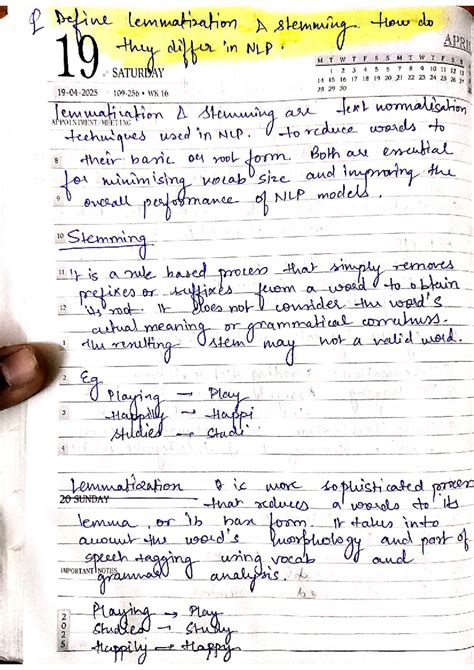 Q Define lemmatization & stemming. How do
they differ in NLP.
APRI
19
SATURDAY
M T W T F S S M T W T F S S
1 2 3 4 5 6 7 8 9 10 11 12 13
14 15 16 17 18 19 20 21 22 23 24 25 26 27
28 29 30
19-04-2025 109-256 • WK 16
lemmatization & stemming are text normalisation
APPOINTMENT/MEETING
techniques used in NLP. to reduce words to
8 their basic or root form. Both are essential
for minimising vocab size and improving the
9 overall performance of NLP models.
10 Stemming
11 It is a rule based process that simply removes
prefixes or suffixes from a word to obtain
12 its root. It does not consider the word's
actual meaning or grammatical correctness.
1 The resulting stem may not a valid word.
2 Eg
Playing → Play
3 Happily → Happi
Studies → Studi
4
Lemmatization It is more sophisticated process
20 SUNDAY
that reduces a words to its
lemma, or its base form. It takes into
account the word's morphology and part of
speech tagging using vocab and
IMPORTANT NOTES
grammar analysis.
Playing → Play
Studied → Study
Happily → Happy
2025